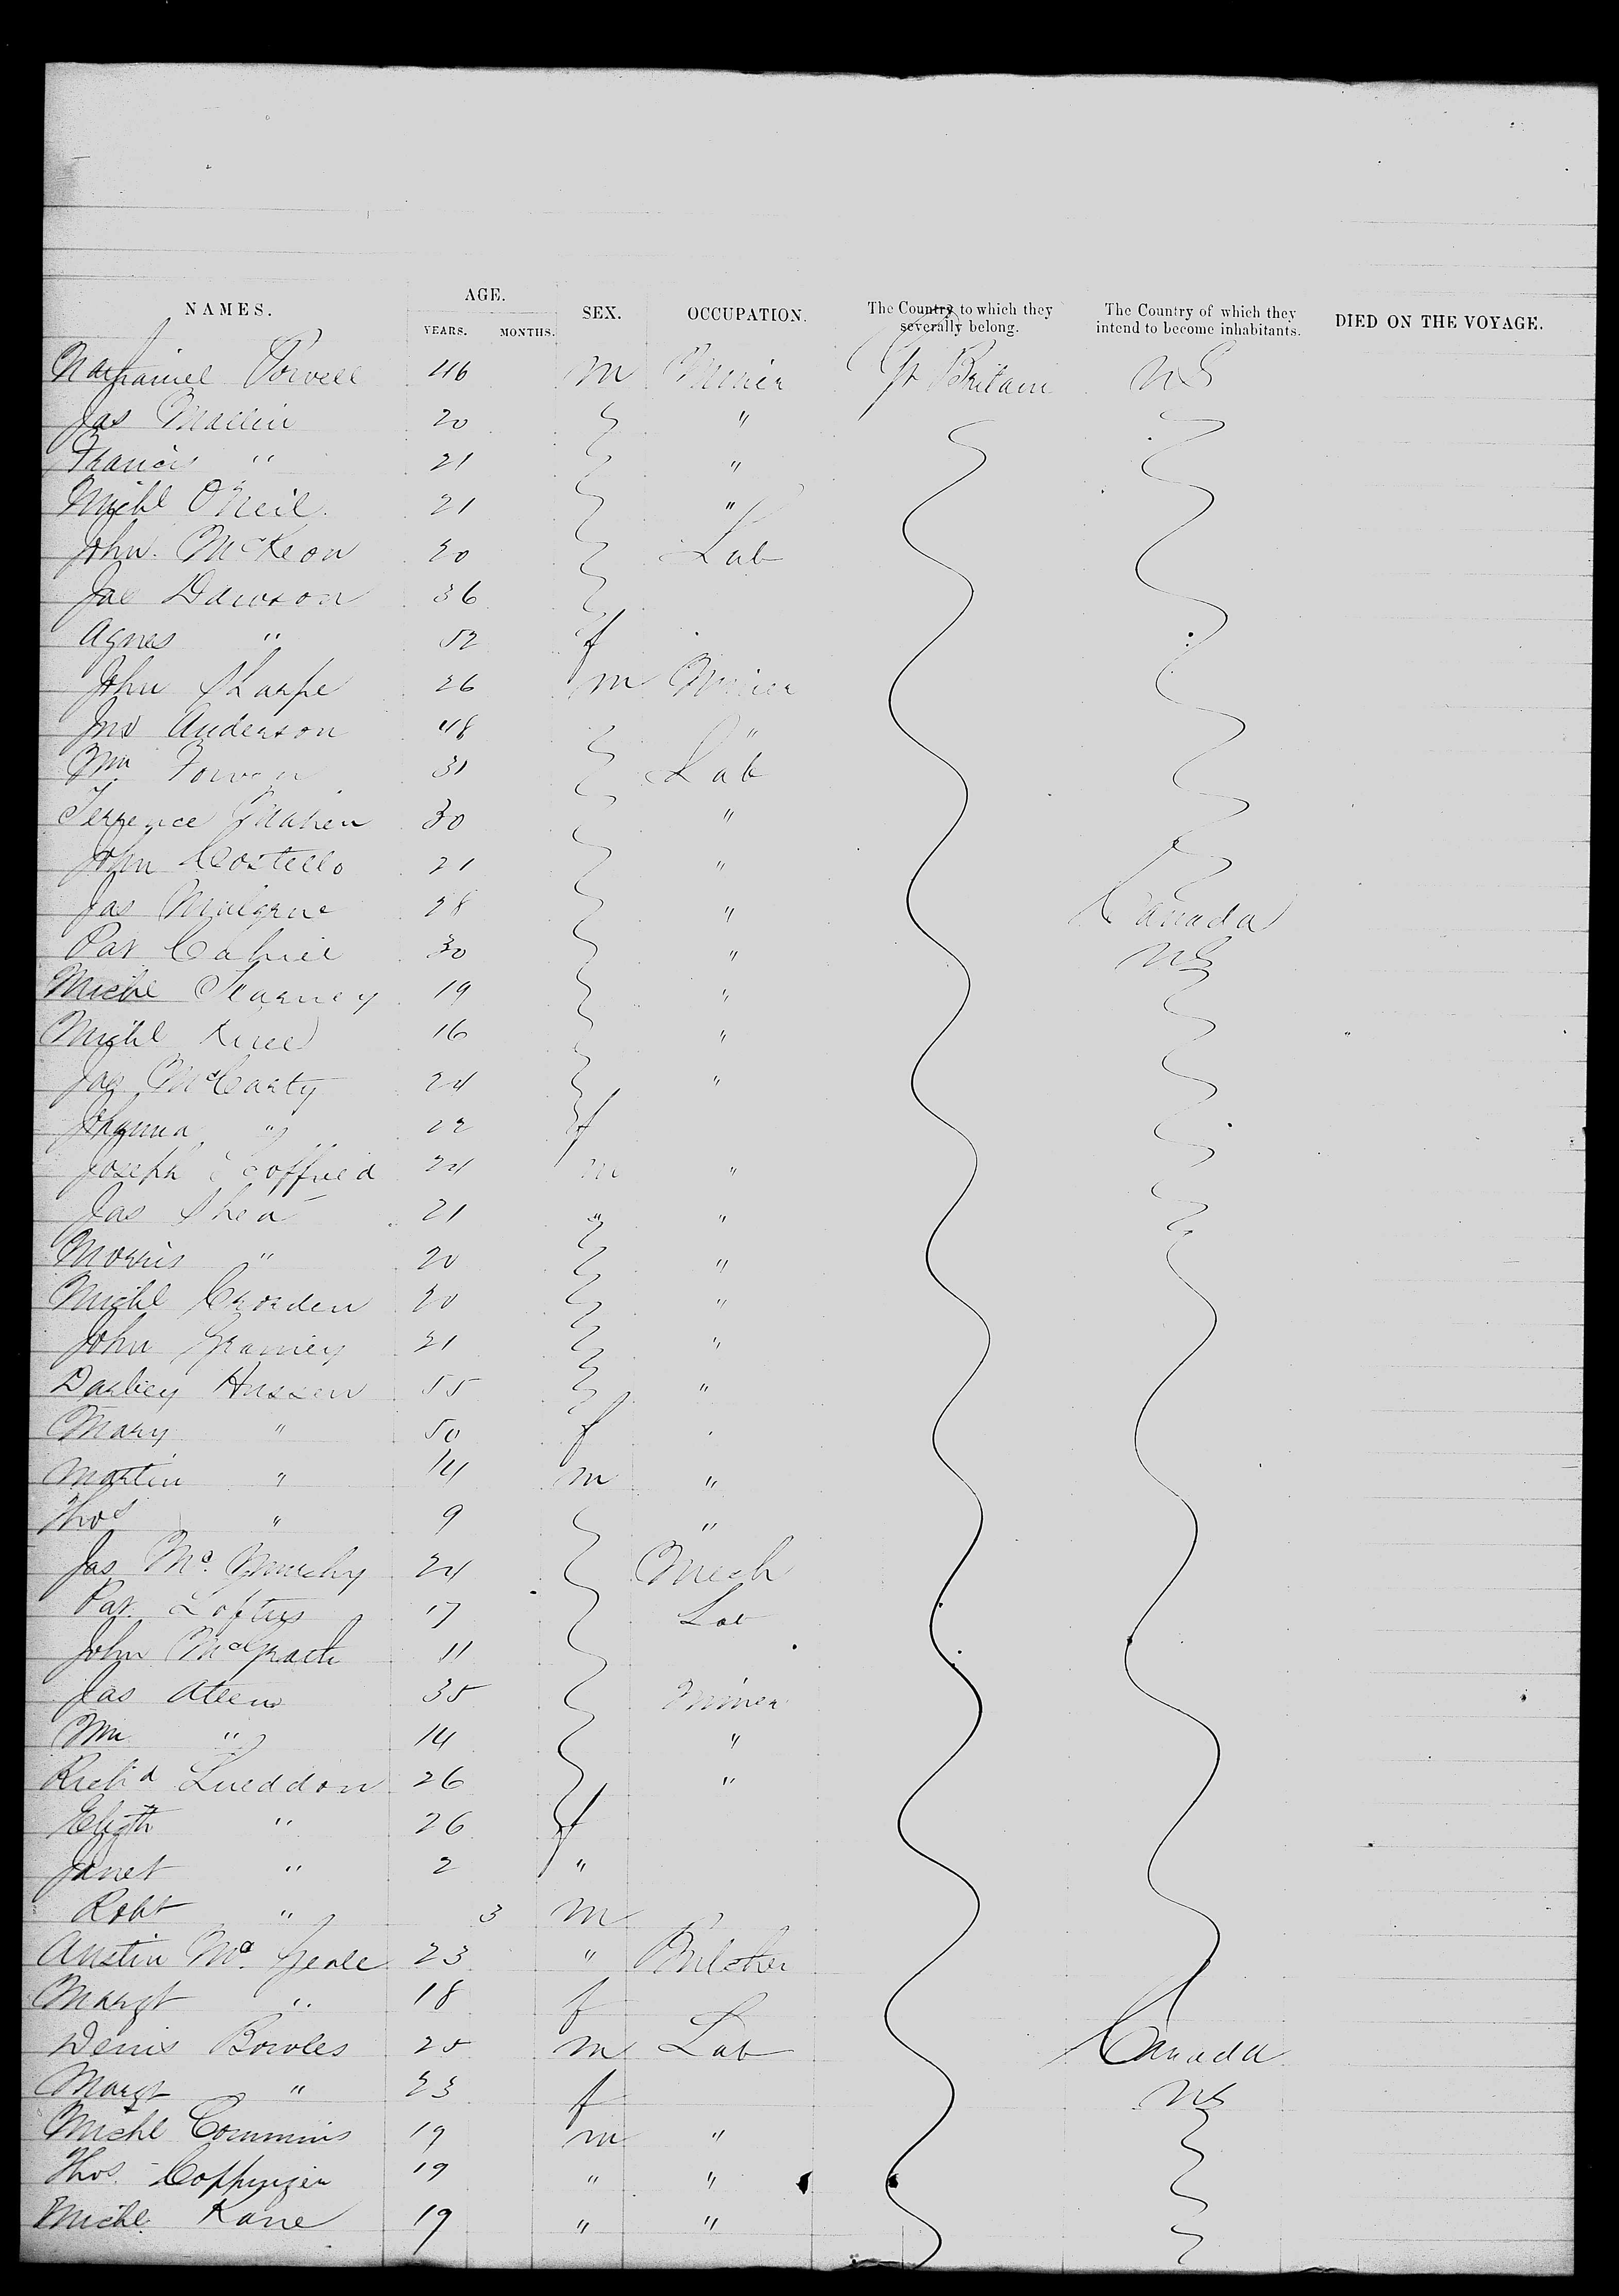 NAMES. AGE. SEX. OCCUPATION. The Country to which they severally belong. The Country of which they intend to become inhabitants. DIED ON THE VOYAGE.
YEARS. MONTHS.
Nathaniel Powell 46 m Miner Gt Britain US
Jas Mallin 20 "
Francis " 21 "
Michl O'Neil 21 "
John McKeon 20 Lab
Jas Dawson 36
Agnes " 52 f
John Sharpe 26 m Miner
Jno Anderson 48 "
Wm 31 Lab
Terrence 30 "
John Costello 21 "
Jas 28 " Canada
Pat Cahill 30 " US
Michl 19 "
Michl 16 "
Jas McCarty 24 "
Johanna " 22 f
Joseph 24 m "
Jas Shea 21 " "
Morris " 20 "
Michl 20 "
John 21 "
Darbey Hussen 55 "
Mary " 50 f
Martin " 14 m "
Thos " 9 "
Jas Mc 24 Mech
Pat Loftus 17 Lab
John McGrath 11
Jas 35 Miner
Wm " 14 "
Richd 26 "
Elizth " 26 f
Janet " 2 "
Robt " 3 m
Austin Mc 23 " Butcher
Margt " 18 f
Denis Bowles 25 m Lab Canada
Margt " 23 f US
Michl Commins 19 m "
Thos Coppinger 19 " "
Michl Kane 19 " "